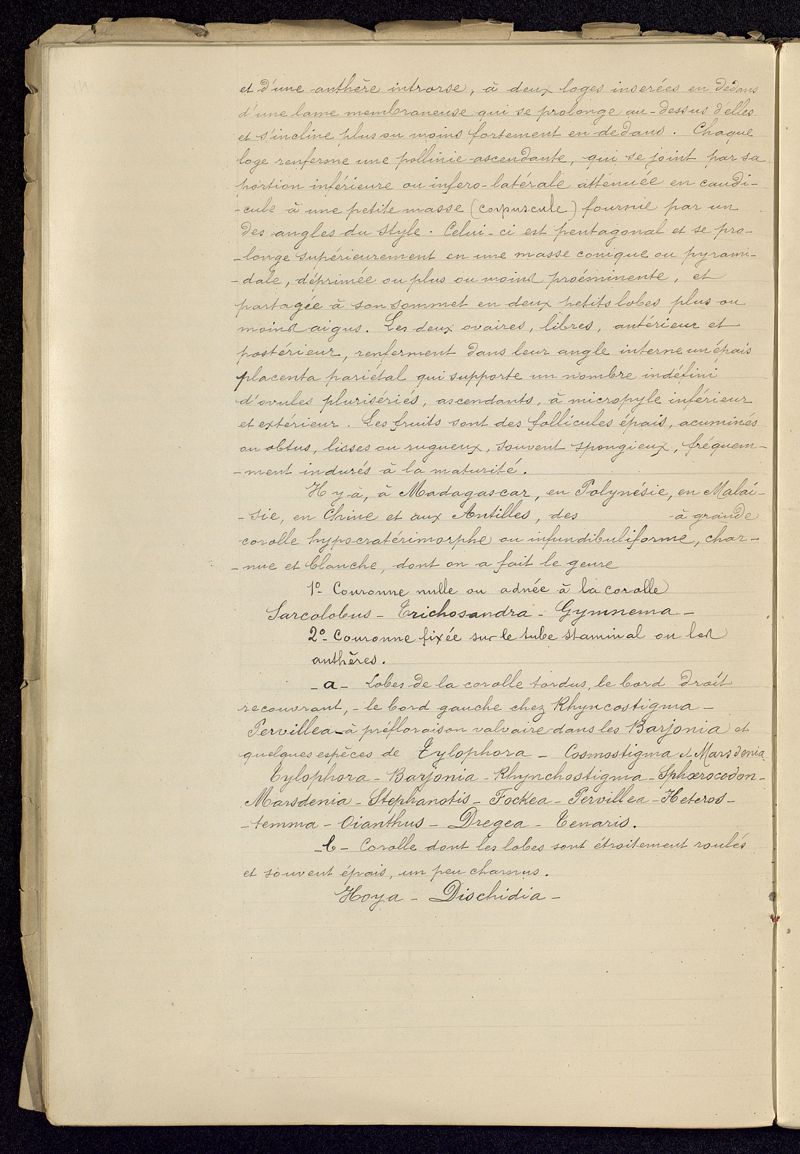 et d'une anthère introrse, à deux loges inserées en dedans
d'une lame membraneuse qui se prolonge au-dessus d'elles
et s'incline plus ou moins fortement en dedans. Chaque
loge renferme une pollinie ascendante, qui se joint par sa
portion inférieure ou infero-latérale atténuée en caudi-
-cule à une petite masse (corpuscule) fournie par un
des angles du style. Celui-ci est pentagonal et se pro-
-longe supérieurement en une masse conique ou pyrami-
-dale, déprimée ou plus ou moins proéminente, et
partagée à son sommet en deux petits lobes plus ou
moins aigus. Les deux ovaires, libres, antérieur et
postérieur, renferment dans leur angle interne un épais
placenta pariétal qui supporte un nombre indéfini
d'ovules plurisériés, ascendants, à micropyle inférieur
et extérieur. Les fruits sont des follicules épais, acuminés
ou obtus, lisses ou rugueux, souvent spongieux, fréquem-
-ment indurés à la maturité.
Il y a, à Madagascar, en Polynésie, en Malai-
-sie, en Chine et aux Antilles, des à grande
corolle hypocratérimorphe ou infundibuliforme, char-
-nue et blanche, dont on a fait le genre
1º- Couronne nulle ou adnée à la corolle
Sarcolobus - Trichosandra - Gymnema -
2º- Couronne fixée sur le tube staminal ou les
anthères.
- a - Lobes de la corolle tordus, le bord droit
recouvrant, - le bord gauche chez Rhyncostigma -
Pervillea - à préfloraison valvaire dans les Barjonia et
quelques espèces de Tylophora - Cosmostigma et Marsdenia
Tylophora - Barjonia - Rhynchostigma - Sphærocodon -
Marsdenia - Stephanotis - Fockea - Pervillea - Heteros-
-temma - Oianthus - Dregea - Tenaris.
- b - Corolle dont les lobes sont étroitement roulés
et souvent épais, un peu charnus.
Hoya - Dischidia -